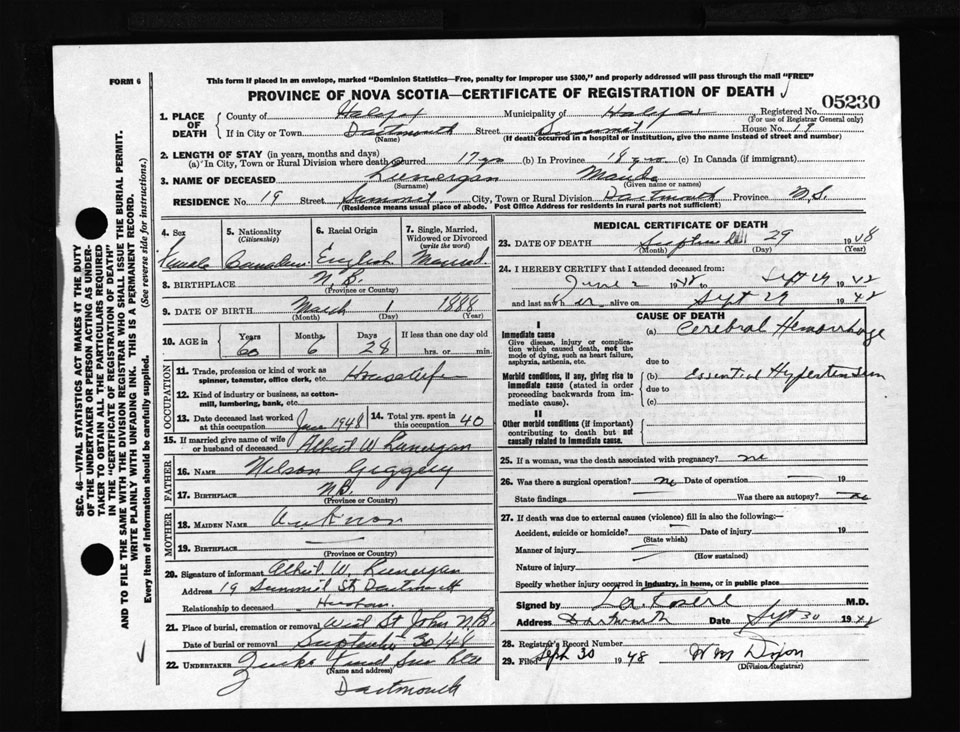 FORM 6
This form if placed in an envelope, marked "Dominion Statistics—Free, penalty for improper use $300," and properly addressed will pass through the mail "FREE"
PROVINCE OF NOVA SCOTIA—CERTIFICATE OF REGISTRATION OF DEATH
05230
1. PLACE OF DEATH
County of Halifax Municipality of Halifax Registered No.
(For use of Registrar General only)
If in City or Town Dartmouth Street Summit House No. 19
(Name) (If death occurred in a hospital or institution, give the name instead of street and number)
2. LENGTH OF STAY (in years, months and days)
(a) In City, Town or Rural Division where death occurred 17 yrs (b) In Province 18 yrs (c) In Canada (if immigrant)
3. NAME OF DECEASED Lunergan
(Surname) (Given name or names)
RESIDENCE No. 19 Street Summit City, Town or Rural Division Dartmouth Province N.S.
(Residence means usual place of abode. Post Office Address for residents in rural parts not sufficient)
4. Sex
Female
5. Nationality
(Citizenship)
Canadian
6. Racial Origin
English
7. Single, Married, Widowed or Divorced
(write the word)
Married
8. BIRTHPLACE N.B.
(Province or Country)
9. DATE OF BIRTH March 1 1888
(Month) (Day) (Year)
10. AGE in
Years
60
Months
6
Days
28
If less than one day old
hrs. or min.
OCCUPATION
11. Trade, profession or kind of work as
spinner, teamster, office clerk, etc. Housewife
12. Kind of industry or business, as cotton-
mill, lumbering, bank, etc.
13. Date deceased last worked
at this occupation June 1948
14. Total yrs. spent in
this occupation 40
15. If married give name of wife
or husband of deceased Albert W. Lunergan
FATHER
16. NAME Wilson
17. BIRTHPLACE N.B.
(Province or Country)
MOTHER
18. MAIDEN NAME Unknown
19. BIRTHPLACE —
(Province or Country)
20. Signature of informant Albert W. Lunergan
Address 19 Summit St Dartmouth
Relationship to deceased Husband
21. Place of burial, cremation or removal West St John N.B.
Date of burial or removal September 30/48
22. UNDERTAKER
(Name and address)
Dartmouth
MEDICAL CERTIFICATE OF DEATH
23. DATE OF DEATH September 29 1948
(Month) (Day) (Year)
24. I HEREBY CERTIFY that I attended deceased from:
June 2 1948 to Sept 29 1948
and last saw her alive on Sept 29 1948
CAUSE OF DEATH
I
Immediate cause
Give disease, injury or complica-
tion which caused death, not the
mode of dying, such as heart failure,
asphyxia, asthenia, etc.
(a) Cerebral Hemorrhage
due to
Morbid conditions, if any, giving rise to
immediate cause (stated in order
proceeding backwards from im-
mediate cause).
(b) Essential Hypertension
due to
(c)
II
Other morbid conditions (if important)
contributing to death but not
causally related to immediate cause.
25. If a woman, was the death associated with pregnancy? no
26. Was there a surgical operation? no Date of operation — 19
State findings — Was there an autopsy? no
27. If death was due to external causes (violence) fill in also the following:—
Accident, suicide or homicide? — Date of injury 19
(State which)
Manner of injury —
(How sustained)
Nature of injury
Specify whether injury occurred in industry, in home, or in public place
Signed by M.D.
Address Dartmouth Date Sept 30 1948
28. Registrar's Record Number
29. Filed Sept 30 1948 W M Dixon
(Division Registrar)
SEC. 46—VITAL STATISTICS ACT MAKES IT THE DUTY
OF THE UNDERTAKER OR PERSON ACTING AS UNDER-
TAKER TO OBTAIN ALL THE PARTICULARS REQUIRED
IN THE "CERTIFICATE OF REGISTRATION OF DEATH"
AND TO FILE THE SAME WITH THE DIVISION REGISTRAR WHO SHALL ISSUE THE BURIAL PERMIT.
WRITE PLAINLY WITH UNFADING INK. THIS IS A PERMANENT RECORD.
Every item of information should be carefully supplied. (See reverse side for instructions.)